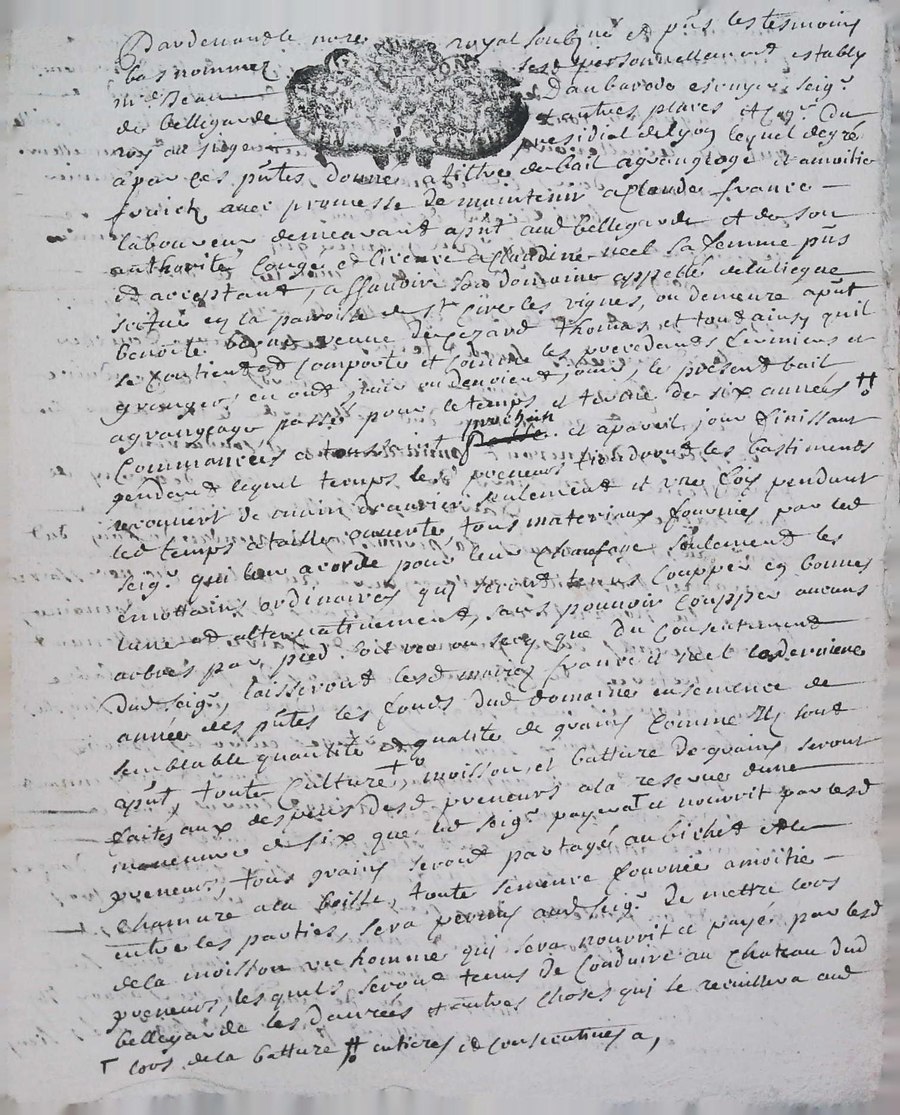 Pardevant le nore royal soubzné et pnts les tesmoins
bas nommez sest personnellement estably
Mre Jean Daubarede escuyer seigr
de bellegarde et autres places et Con.r du
roy au siege presidial de Lyon lequel de gré
a par ces pntes donné a tiltre de bail a grangeage et a moitie
fruich avec promesse de maintenir a Claude france
laboureur demeurant apnt aud bellegarde et de son
authorité, Congé et licence a Claudine neel sa femme pnts
et acceptant, assavoir son domaine appellé de la
scitué en la paroisse de st Cire les vignes, ou demeure apnt
benoite veuve de Cezard thomas, et tout ainsy quil
se Contient et Comporte et Comme les precedants fermiers et
grangers en ont, jouir ou devoient jouir, le present bail
a grangeage passé pour le temps et terme de six années ⸗
prochain
Commancées a toussaint et a pareil jour finissant
pendant lequel temps les preneurs tiendront les bastiments
recouvert de main douvrier seulement et une fois pendant
led temps a taille ouverte, tous materiaux fournis par led
seigr qui leur acorde pour leur chaufage seulement les
émottains ordinaires qu'ils seront tenus Coupper en bonnes
lune et alternativement, sans pouvoir Coupper aucuns
arbres par pied soit vert ou secq que du Consentement
dud seigr, laisseront lesd mariez france et neel la derniere
année des pntes les fonds dud domaine ensemencé de
semblable quantité et qualité de grains Comme ils sont
apnt, toute Culture, moisson, et batture de grains seront
faites aux despens desd preneurs a la reserve dune
manoeuvre de six que led seigr payera et nourrit par lesd
preneurs, tous grains seront partagés au bichet et le
Chamure a la boille, toute semence fournie a moitie
entre les parties, sera permis aud seigr de mettre lors
de la moisson un homme qui sera nourrit et payé par lesd
preneurs, lesquels seront tenus de Conduire au Chateau dud
bellegarde les danrées et autres choses qui se receuillera aud
lors de la batture ⸗ entieres et consecutives a,